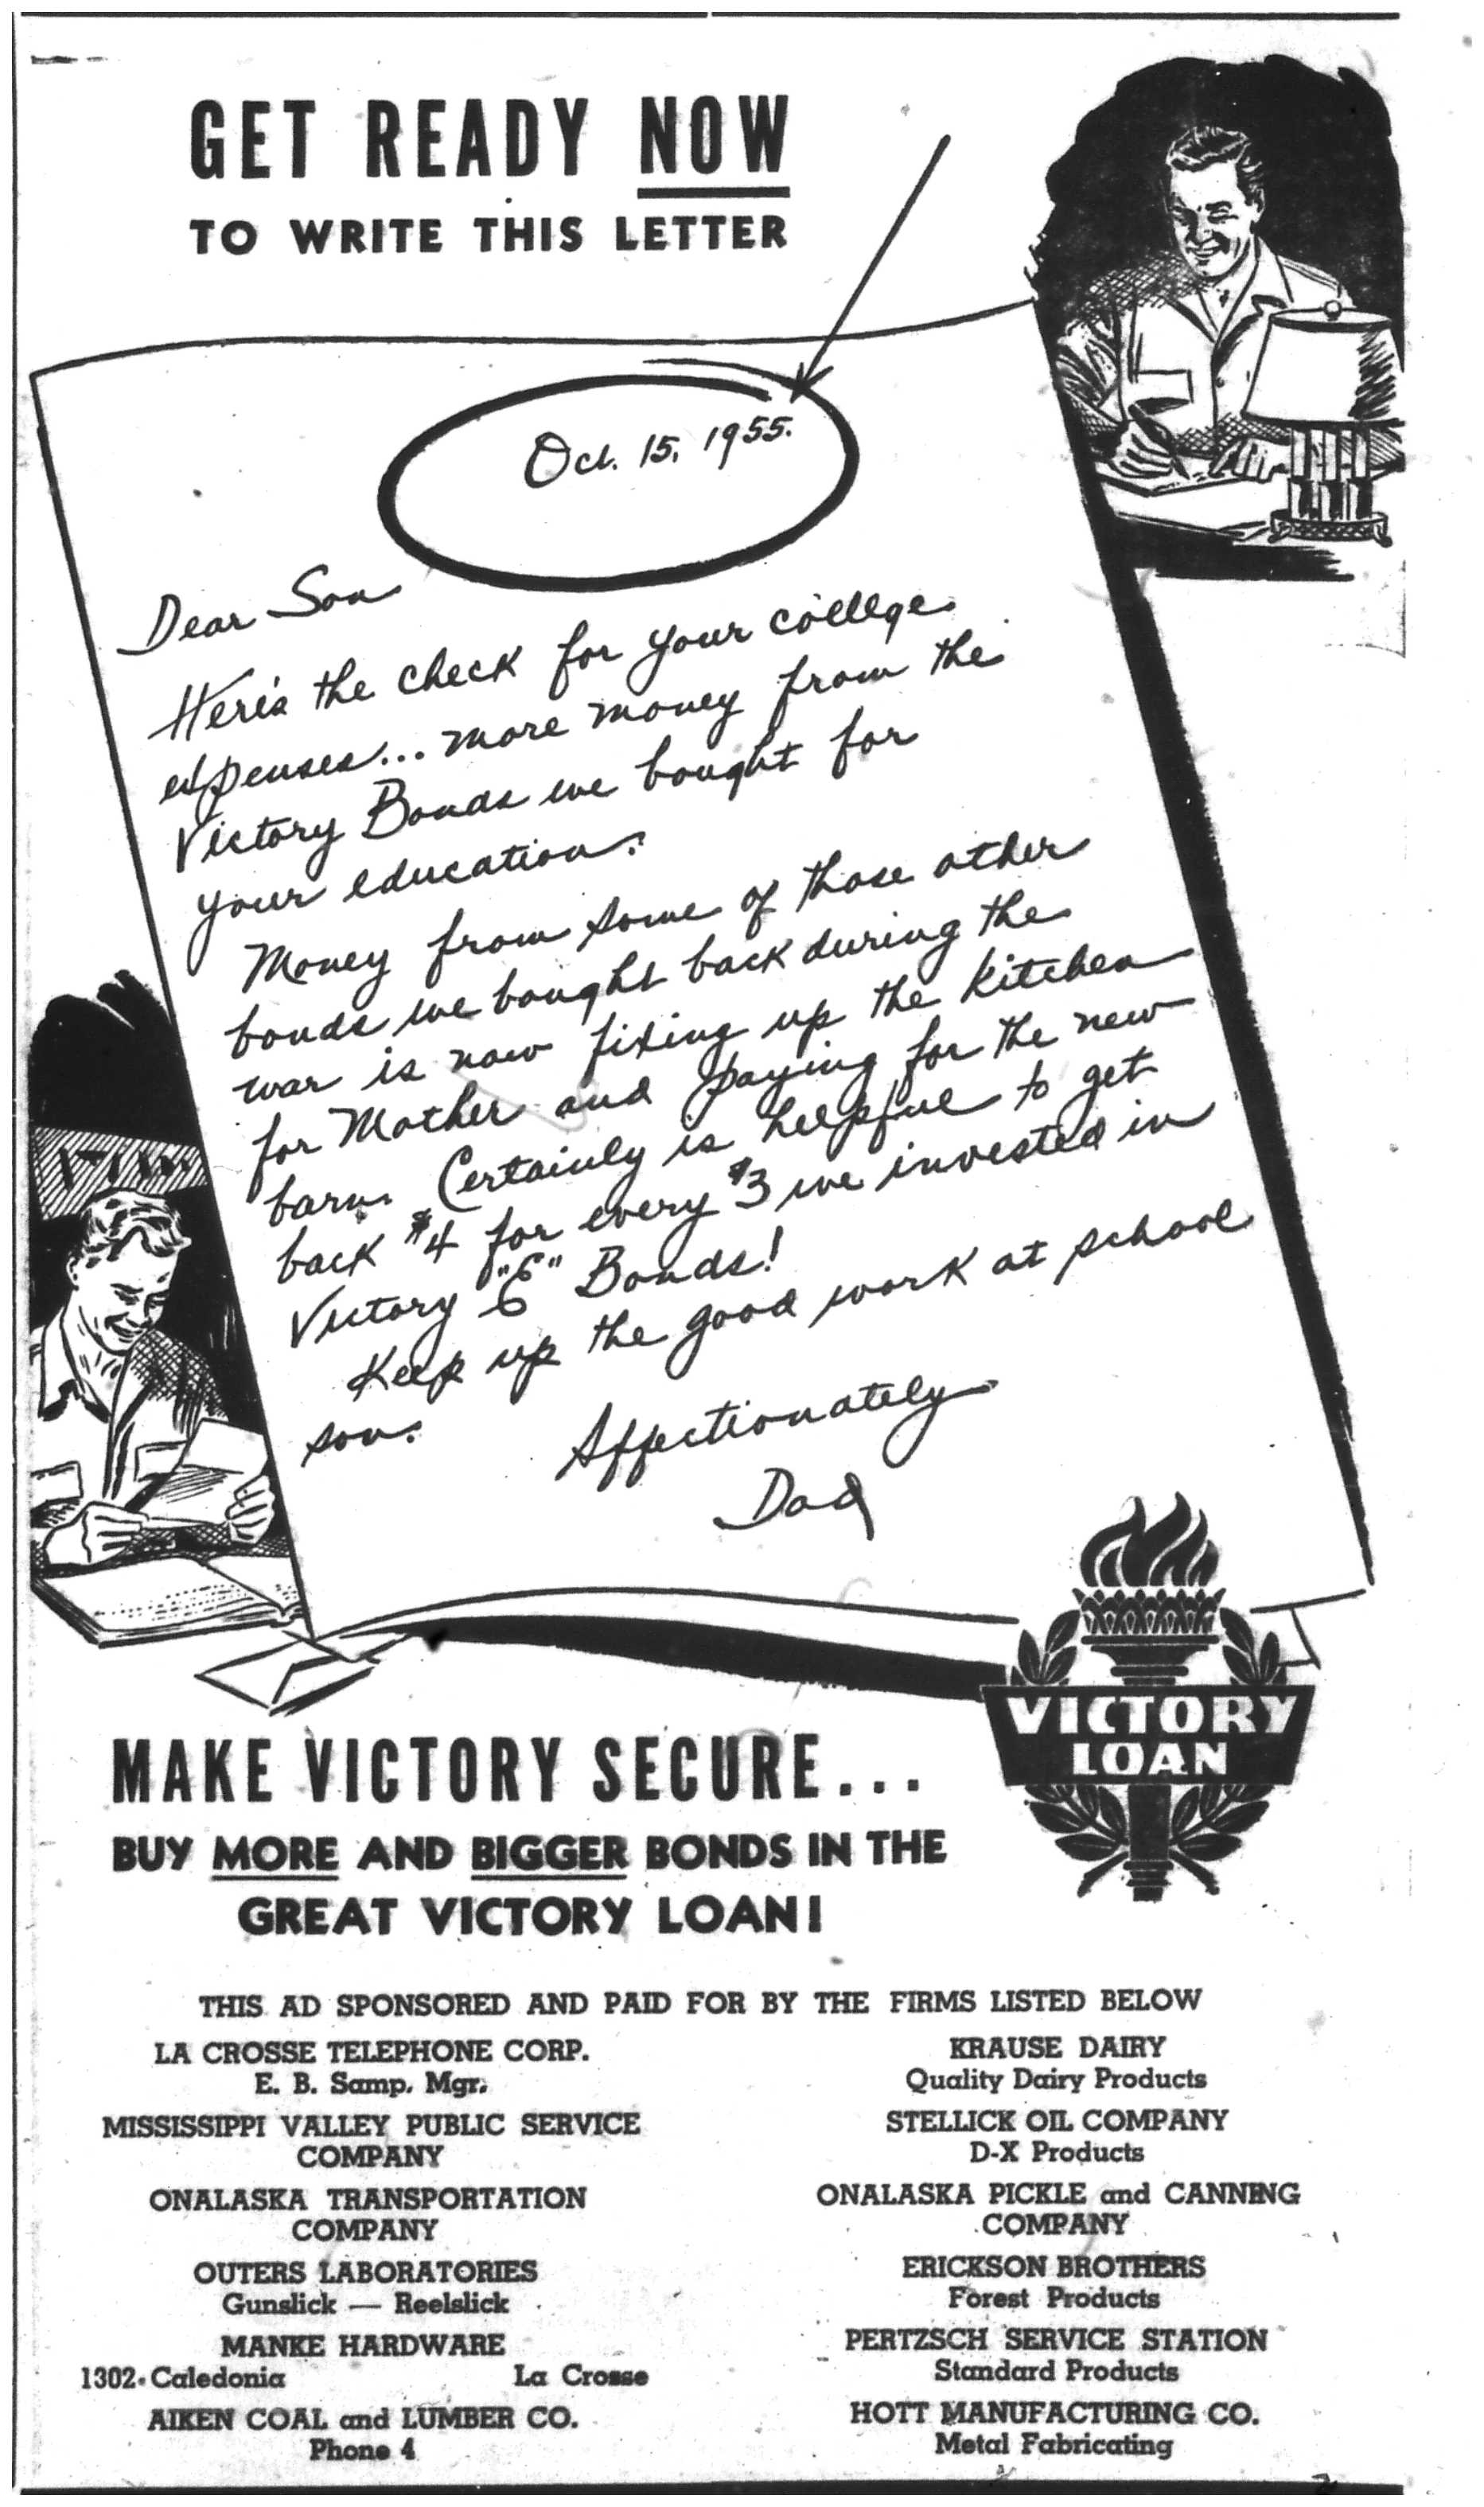 GET READY NOW
TO WRITE THIS LETTER
Oct. 15, 1955.
Dear Son
Here's the check for your college
expenses... more money from the
Victory Bonds we bought for
your education.
Money from some of those other
bonds we bought back during the
war is now fixing up the kitchen
for Mother and paying for the new
barn. Certainly is helpful to get
back $4 for every $3 we invested in
Victory "E" Bonds!
Keep up the good work at school
son.
Affectionately
Dad
VICTORY
LOAN
MAKE VICTORY SECURE...
BUY MORE AND BIGGER BONDS IN THE
GREAT VICTORY LOAN!
THIS AD SPONSORED AND PAID FOR BY THE FIRMS LISTED BELOW
LA CROSSE TELEPHONE CORP.
E. B. Samp, Mgr.
MISSISSIPPI VALLEY PUBLIC SERVICE
COMPANY
ONALASKA TRANSPORTATION
COMPANY
OUTERS LABORATORIES
Gunslick — Reelslick
MANKE HARDWARE
1302 Caledonia La Crosse
AIKEN COAL and LUMBER CO.
Phone 4
KRAUSE DAIRY
Quality Dairy Products
STELLICK OIL COMPANY
D-X Products
ONALASKA PICKLE and CANNING
COMPANY
ERICKSON BROTHERS
Forest Products
PERTZSCH SERVICE STATION
Standard Products
HOTT MANUFACTURING CO.
Metal Fabricating